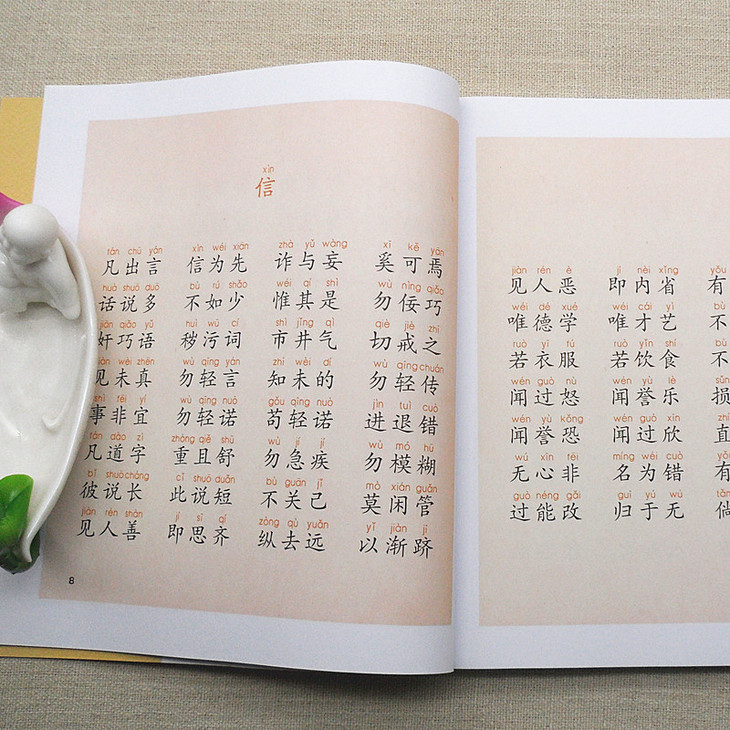 xìn
信
fán chū yán xìn wéi xiān zhà yǔ wàng xī kě yān
凡出言 信为先 诈与妄 奚可焉
huà shuō duō bù rú shǎo wéi qí shì wù nìng qiǎo
话说多 不如少 惟其是 勿佞巧
jiān qiǎo yǔ huì wū cí shì jǐng qì qiè jiè zhī
奸巧语 秽污词 市井气 切戒之
jiàn wèi zhēn wù qīng yán zhī wèi dí wù qīng chuán
见未真 勿轻言 知未的 勿轻传
shì fēi yí wù qīng nuò gǒu qīng nuò jìn tuì cuò
事非宜 勿轻诺 苟轻诺 进退错
fán dào zì zhòng qiě shū wù jí jí wù mó hū
凡道字 重且舒 勿急疾 勿模糊
bǐ shuō cháng cǐ shuō duǎn bù guān jǐ mò xián guǎn
彼说长 此说短 不关己 莫闲管
jiàn rén shàn jí sī qí zòng qù yuǎn yǐ jiàn jī
见人善 即思齐 纵去远 以渐跻
8
jiàn rén è jí nèi xǐng yǒu
见人恶 即内省 有
wéi dé xué wéi cái yì bù
唯德学 唯才艺 不
ruò yī fú ruò yǐn shí bù
若衣服 若饮食 不
wén guò nù wén yù lè sǔn
闻过怒 闻誉乐 损
wén yù kǒng wén guò xīn
闻誉恐 闻过欣 直
wú xīn fēi míng wéi cuò yǒu
无心非 名为错 有
guò néng gǎi guī yú wú
过能改 归于无 倘